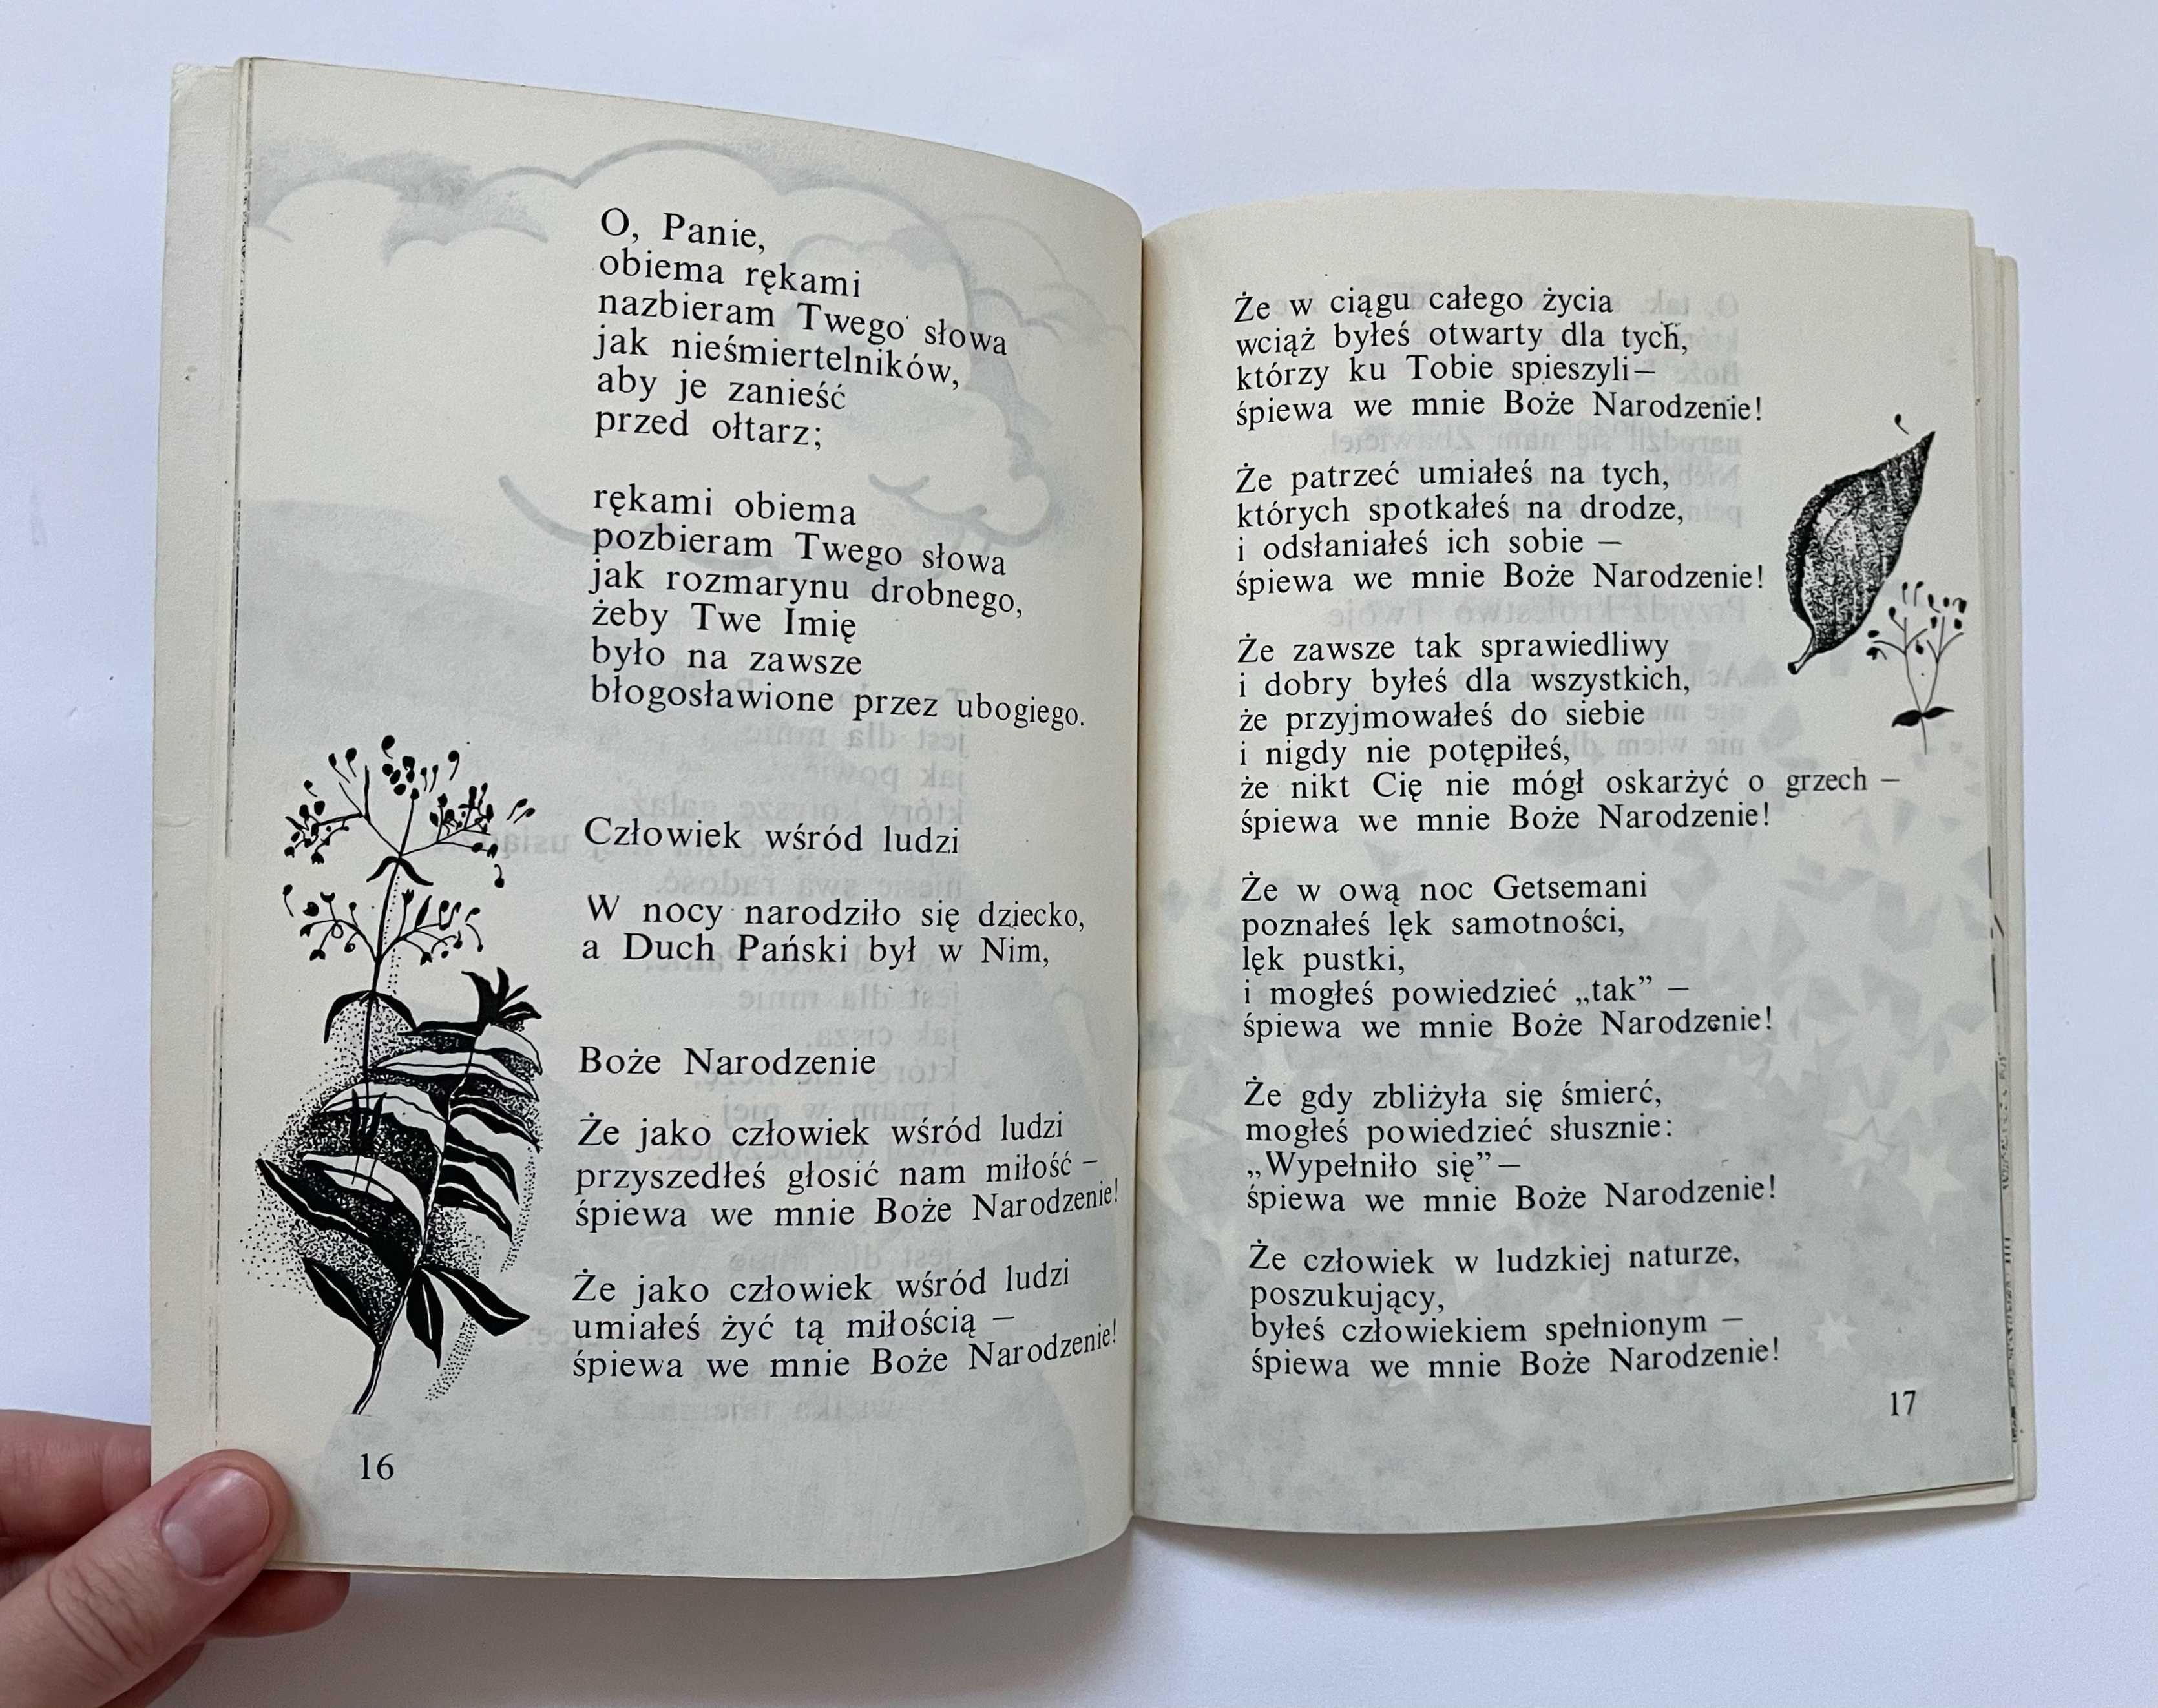 O, Panie,
obiema rękami
nazbieram Twego słowa
jak nieśmiertelników,
aby je zanieść
przed ołtarz;
rękami obiema
pozbieram Twego słowa
jak rozmarynu drobnego,
żeby Twe Imię
było na zawsze
błogosławione przez ubogiego.
Człowiek wśród ludzi
W nocy narodziło się dziecko,
a Duch Pański był w Nim,
Boże Narodzenie
Że jako człowiek wśród ludzi
przyszedłeś głosić nam miłość –
śpiewa we mnie Boże Narodzenie!
Że jako człowiek wśród ludzi
umiałeś żyć tą miłością –
śpiewa we mnie Boże Narodzenie!
16
Że w ciągu całego życia
wciąż byłeś otwarty dla tych,
którzy ku Tobie spieszyli–
śpiewa we mnie Boże Narodzenie!
Że patrzeć umiałeś na tych,
których spotkałeś na drodze,
i odsłaniałeś ich sobie –
śpiewa we mnie Boże Narodzenie!
Że zawsze tak sprawiedliwy
i dobry byłeś dla wszystkich,
że przyjmowałeś do siebie
i nigdy nie potępiłeś,
że nikt Cię nie mógł oskarżyć o grzech –
śpiewa we mnie Boże Narodzenie!
Że w ową noc Getsemani
poznałeś lęk samotności,
lęk pustki,
i mogłeś powiedzieć „tak” –
śpiewa we mnie Boże Narodzenie!
Że gdy zbliżyła się śmierć,
mogłeś powiedzieć słusznie:
„Wypełniło się”–
śpiewa we mnie Boże Narodzenie!
Że człowiek w ludzkiej naturze,
poszukujący,
byłeś człowiekiem spełnionym –
śpiewa we mnie Boże Narodzenie!
17